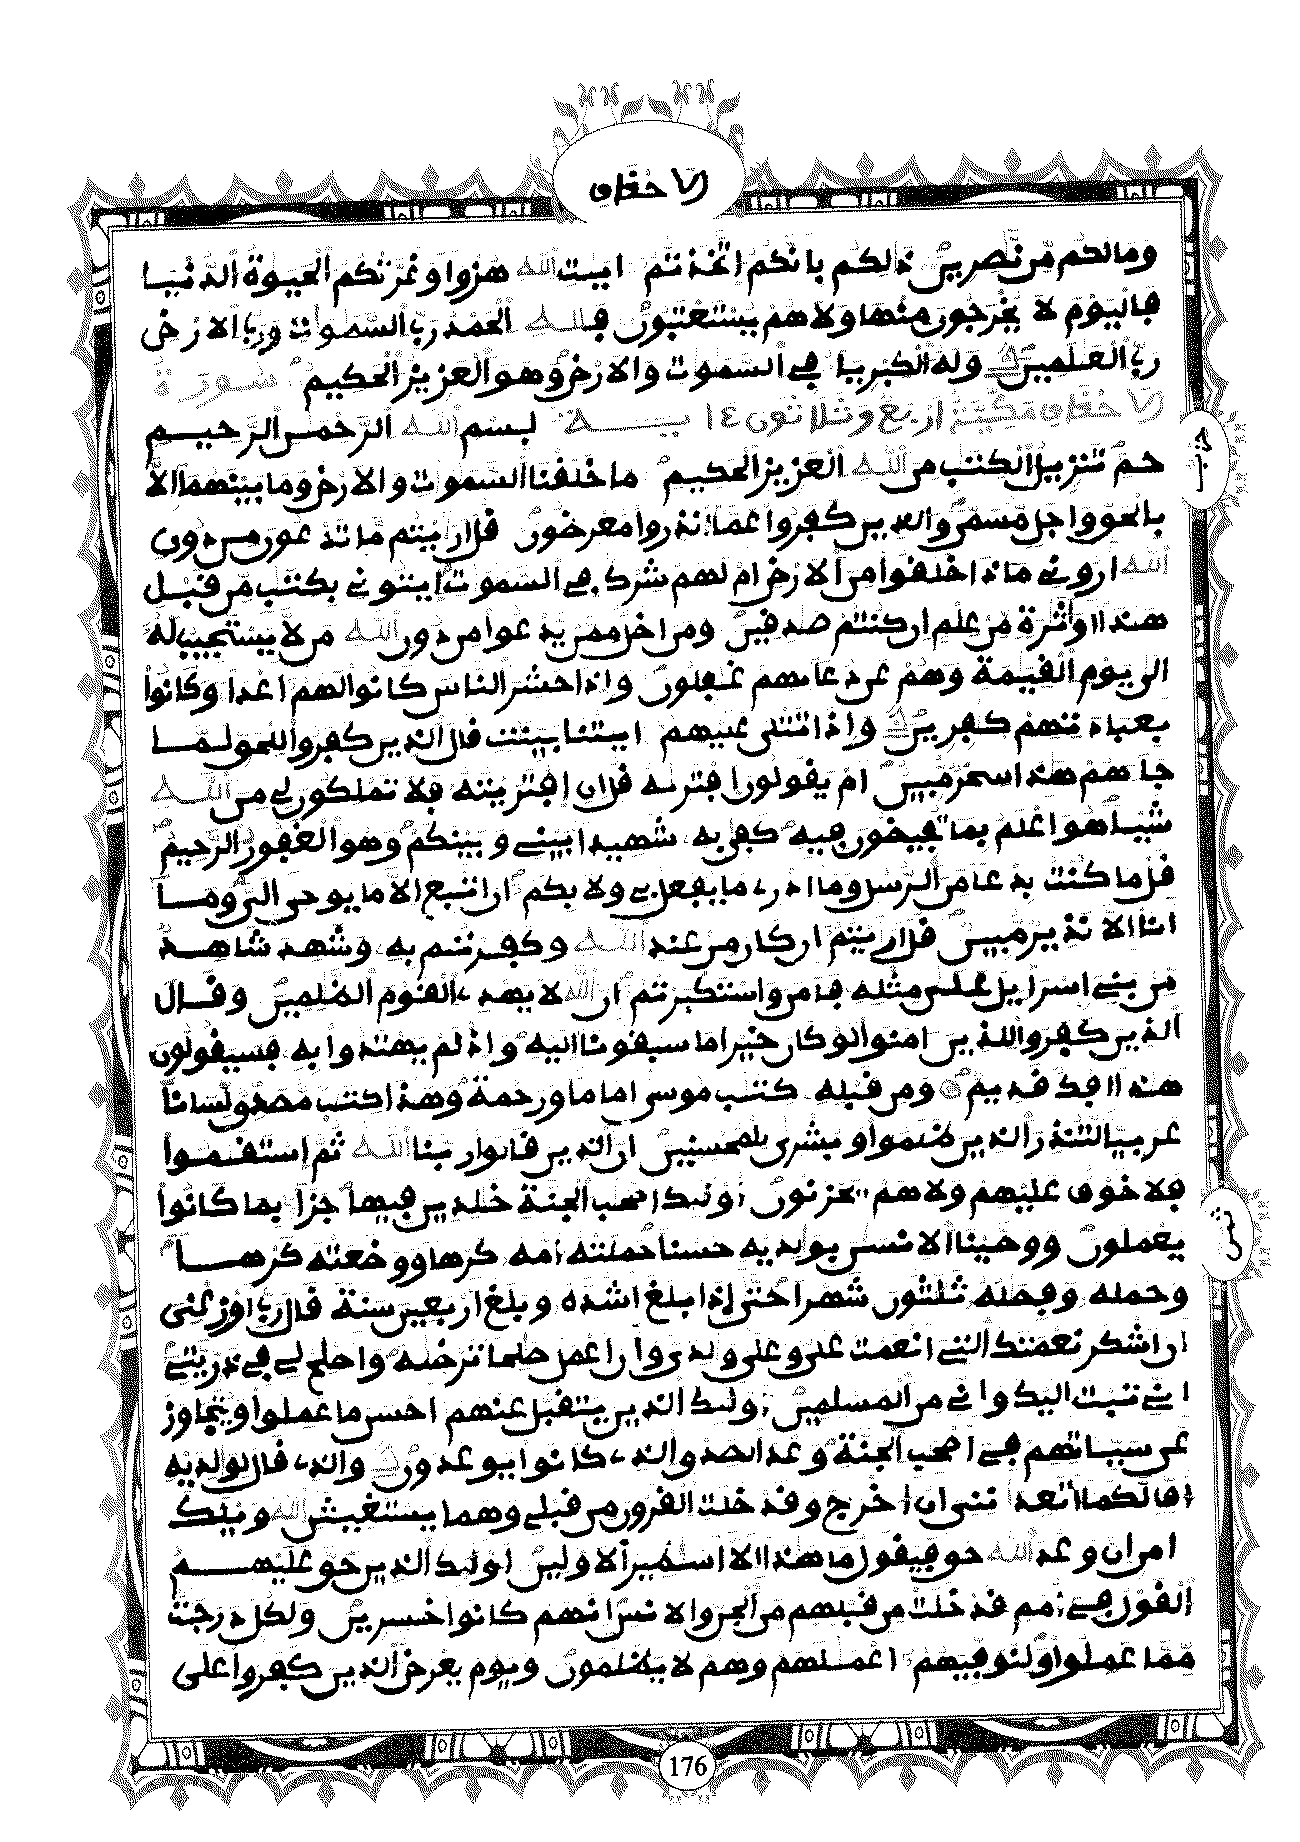 الاحقاف
وما لكم من نصرين ذلكم بانكم اتخذتم ايت الله هزوا وغرتكم الحيوة الدنيا
فاليوم لا يخرجون منها ولا هم يستعتبون فلله الحمد رب السموت ورب الارض
رب العلمين وله الكبريا في السموت والارض وهو العزيز الحكيم سورة
الاحقاف مكية اربع وثلاثون اية بسم الله الرحمن الرحيم
حم تنزيل الكتب من الله العزيز الحكيم ما خلقنا السموت والارض وما بينهما الا
بالحق واجل مسمى والذين كفروا عما انذروا معرضون قل اريتم ما تدعون من دون
الله اروني ماذا خلقوا من الارض ام لهم شرك في السموت ايتوني بكتب من قبل
هذا او اثرة من علم ان كنتم صدقين ومن اضل ممن يدعوا من دون الله من لا يستجيب له
الى يوم القيمة وهم عن دعايهم غفلون واذا حشر الناس كانوا لهم اعدا وكانوا
بعبادتهم كفرين واذا تتلى عليهم ايتنا بينت قال الذين كفروا للحق لما
جاهم هذا سحر مبين ام يقولون افتريه قل ان افتريته فلا تملكون لي من الله
شيا هو اعلم بما تفيضون فيه كفى به شهيدا بيني وبينكم وهو الغفور الرحيم
قل ما كنت بدعا من الرسل وما ادري ما يفعل بي ولا بكم ان اتبع الا ما يوحى الي وما
انا الا نذير مبين قل اريتم ان كان من عند الله وكفرتم به وشهد شاهد
من بني اسرايل على مثله فامن واستكبرتم ان الله لا يهدي القوم الظلمين وقال
الذين كفروا للذين امنوا لو كان خيرا ما سبقونا اليه واذ لم يهتدوا به فسيقولون
هذا افك قديم ومن قبله كتب موسى اماما ورحمة وهذا كتب مصدق لسانا
عربيا لتنذر الذين ظلموا وبشرى للمحسنين ان الذين قالوا ربنا الله ثم استقموا
فلا خوف عليهم ولا هم يحزنون اوليك اصحب الجنة خلدين فيها جزا بما كانوا
يعملون ووصينا الانسن بولديه حسنا حملته امه كرها ووضعته كرها
وحمله وفصله ثلثون شهرا حتى اذا بلغ اشده وبلغ اربعين سنة قال رب اوزعني
ان اشكر نعمتك التي انعمت علي وعلى ولدي وان اعمل صلحا ترضيه واصلح لي في ذريتي
اني تبت اليك واني من المسلمين اوليك الذين يتقبل عنهم احسن ما عملوا ويتجاوز
عن سياتهم في اصحب الجنة وعد الصدق الذي كانوا يوعدون والذي قال لولديه
اف لكما اتعدانني ان اخرج وقد خلت القرون من قبلي وهما يستغيثن الله ويلك
امن ان وعد الله حق فيقول ما هذا الا اسطير الاولين اوليك الذين حق عليهم
القول في امم قد خلت من قبلهم من الجن والانس انهم كانوا خسرين ولكل درجت
مما عملوا ولنوفيهم اعملهم وهم لا يظلمون ويوم يعرض الذين كفروا على
حزب
ثمن
176